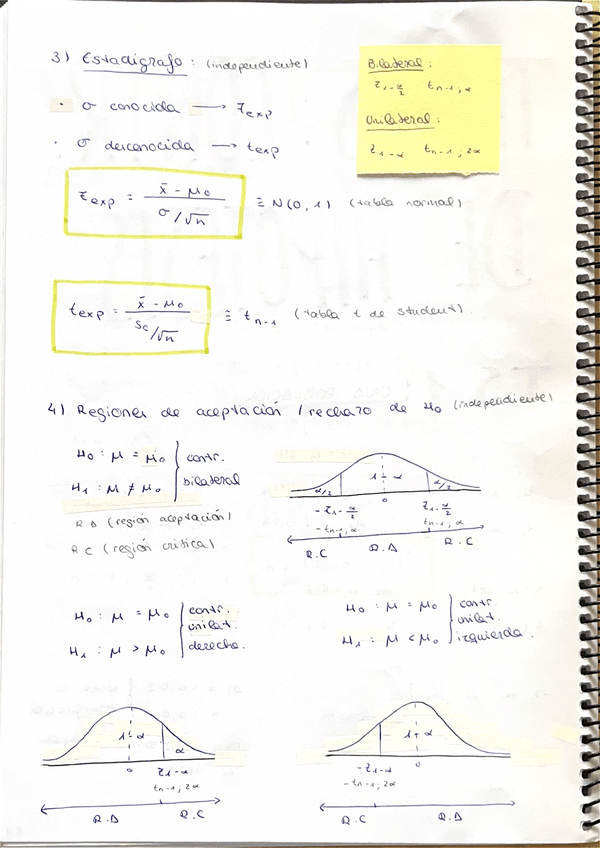 3) Estadígrafo: (independiente)
· σ conocida → Zexp
· σ desconocida → texp
Bilateral:
Z1-α/2 tn-1, α
Unilateral:
Z1-α tn-1, 2α
Zexp = x̄ - μ0 / σ/√n ≡ N(0,1) (tabla normal)
texp = x̄ - μ0 / Sc/√n ≡ tn-1 (tabla t de student)
4) Regiones de aceptación / rechazo de H0 (independiente)
H0 : μ = μ0 } contr.
H1 : μ ≠ μ0 } bilateral
R A (región aceptación)
R C (región crítica)
α/2 1-α α/2
0
-Z1-α/2 Z1-α/2
-tn-1, α tn-1, α
R.C R.A R.C
H0 : μ = μ0 } contr.
unilat.
H1 : μ > μ0 } derecha.
H0 : μ = μ0 } contr.
unilat.
H1 : μ < μ0 } izquierda.
1-α α
0 Z1-α
tn-1, 2α
R.A R.C
1-α
-Z1-α 0
-tn-1, 2α
R.C R.A